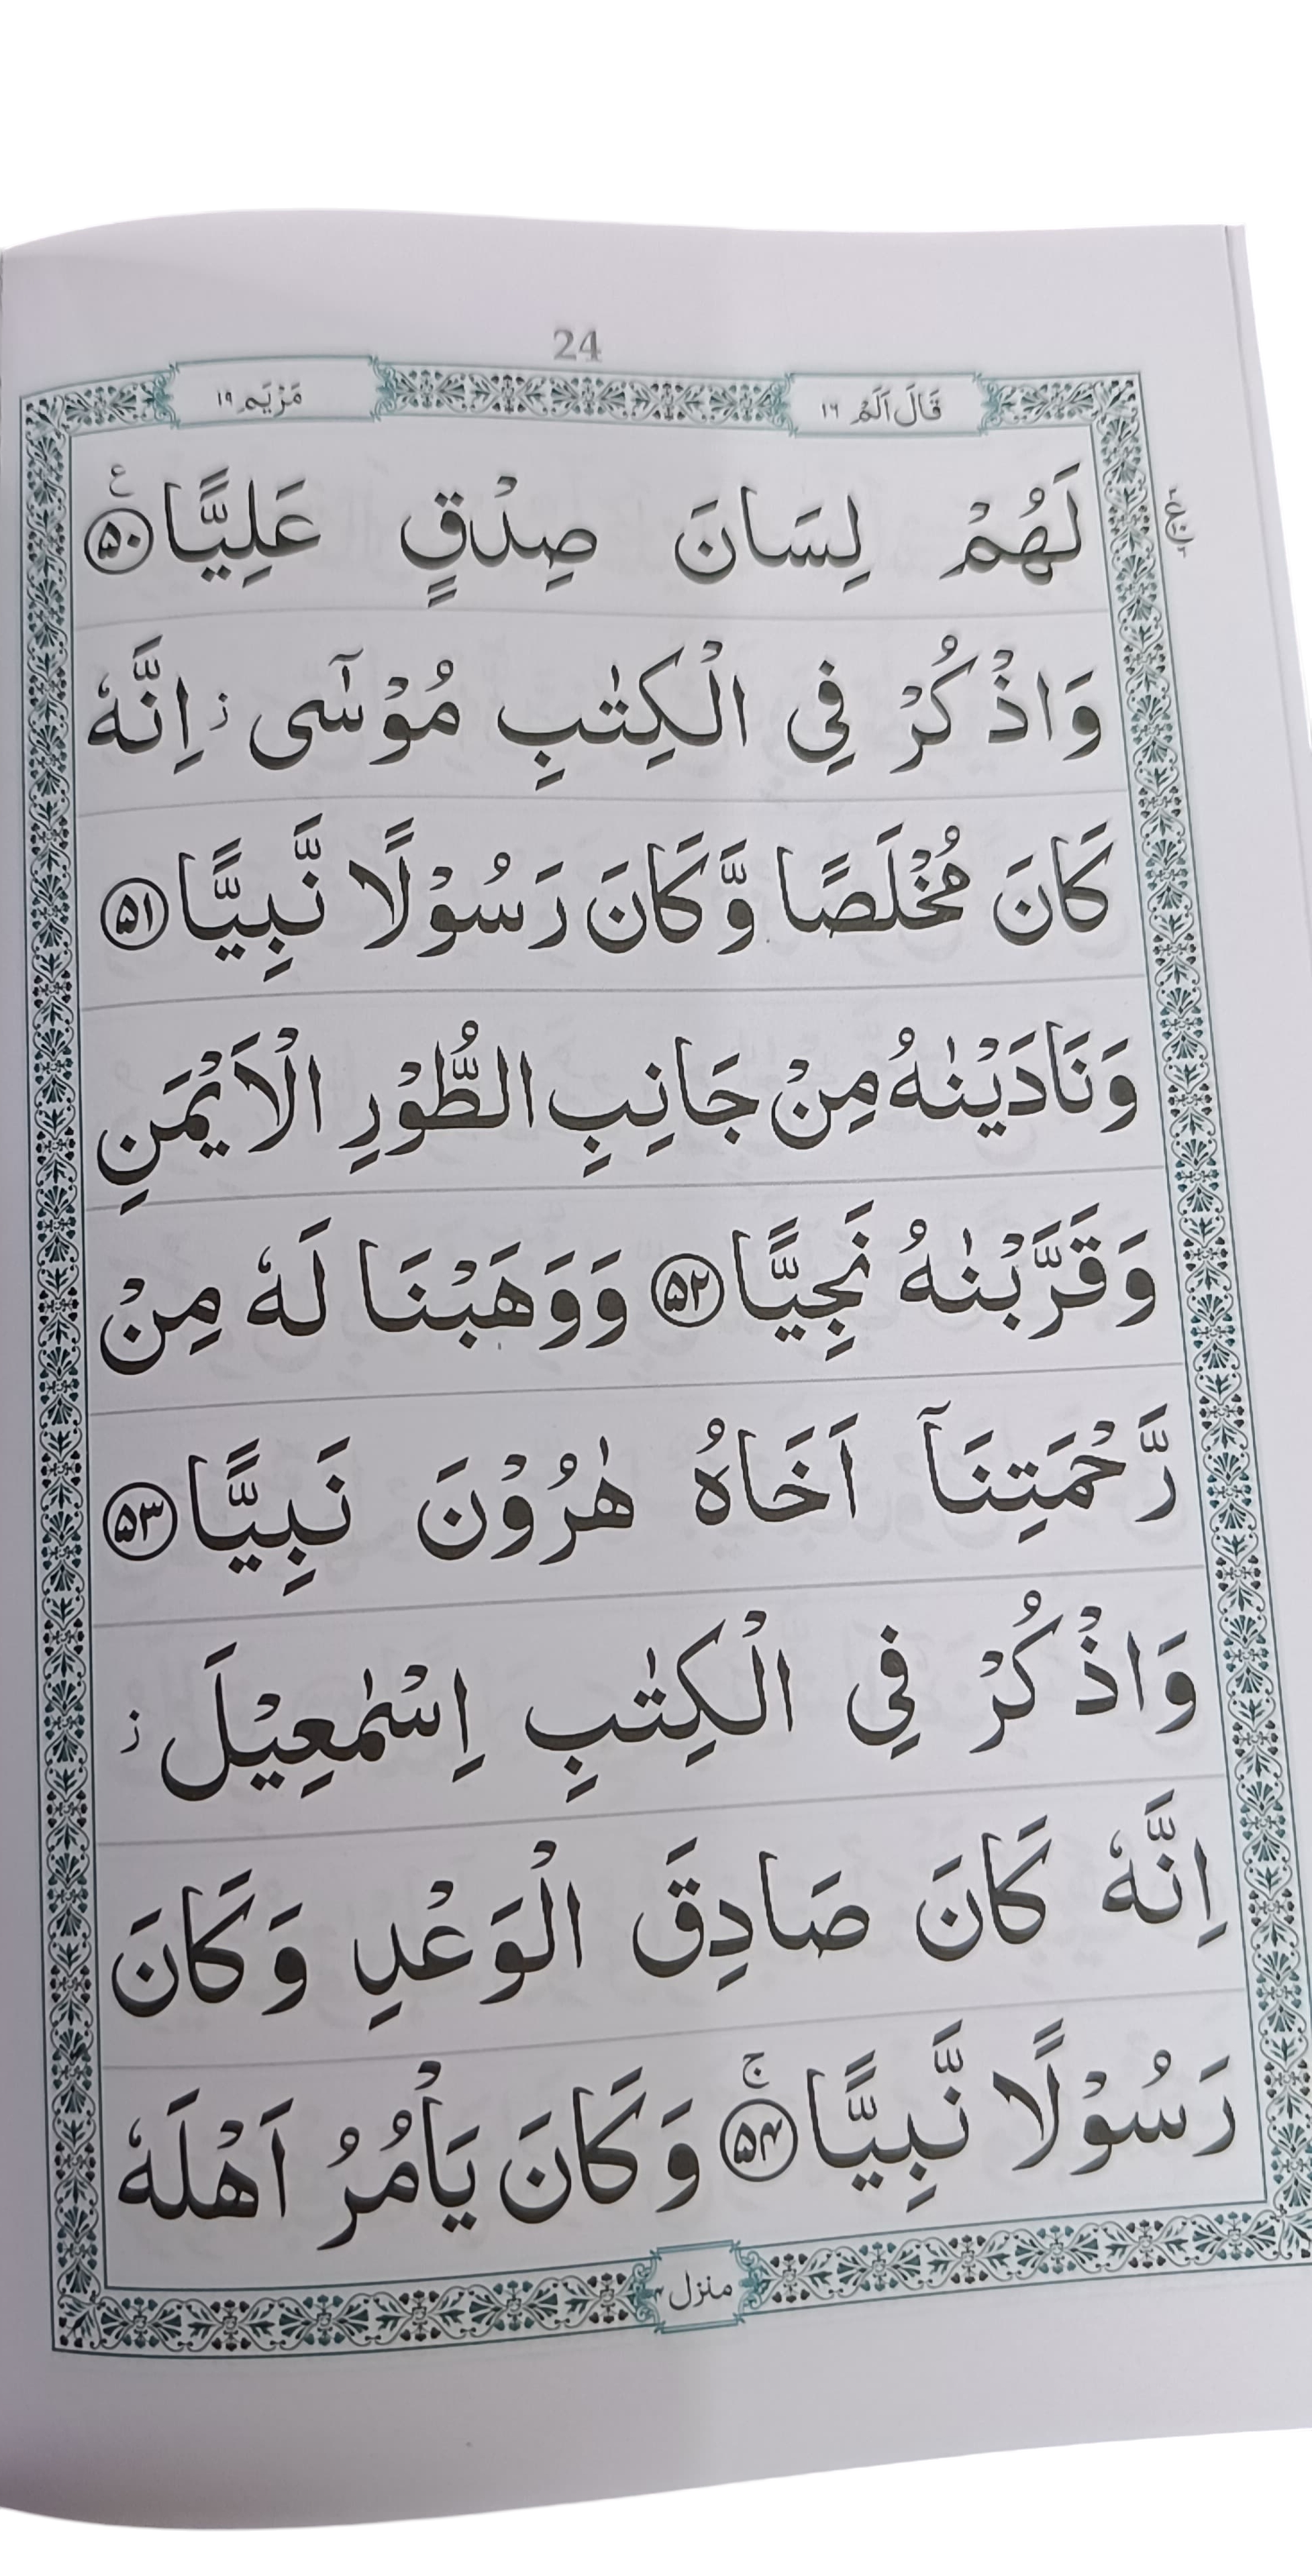 24
قَالَ اَلَمْ ١٦
مَرْيَم ١٩
لَهُمْ لِسَانَ صِدْقٍ عَلِيًّا ۝٥٠ ع
وَاذْكُرْ فِى الْكِتٰبِ مُوْسٰٓى ز اِنَّهٗ
كَانَ مُخْلَصًا وَّكَانَ رَسُوْلًا نَّبِيًّا ۝٥١
وَنَادَيْنٰهُ مِنْ جَانِبِ الطُّوْرِ الْاَيْمَنِ
وَقَرَّبْنٰهُ نَجِيًّا ۝٥٢ وَوَهَبْنَا لَهٗ مِنْ
رَّحْمَتِنَآ اَخَاهُ هٰرُوْنَ نَبِيًّا ۝٥٣
وَاذْكُرْ فِى الْكِتٰبِ اِسْمٰعِيْلَ ز
اِنَّهٗ كَانَ صَادِقَ الْوَعْدِ وَكَانَ
رَسُوْلًا نَّبِيًّا ۝٥٤ ج وَكَانَ يَاْمُرُ اَهْلَهٗ
منزل ٤